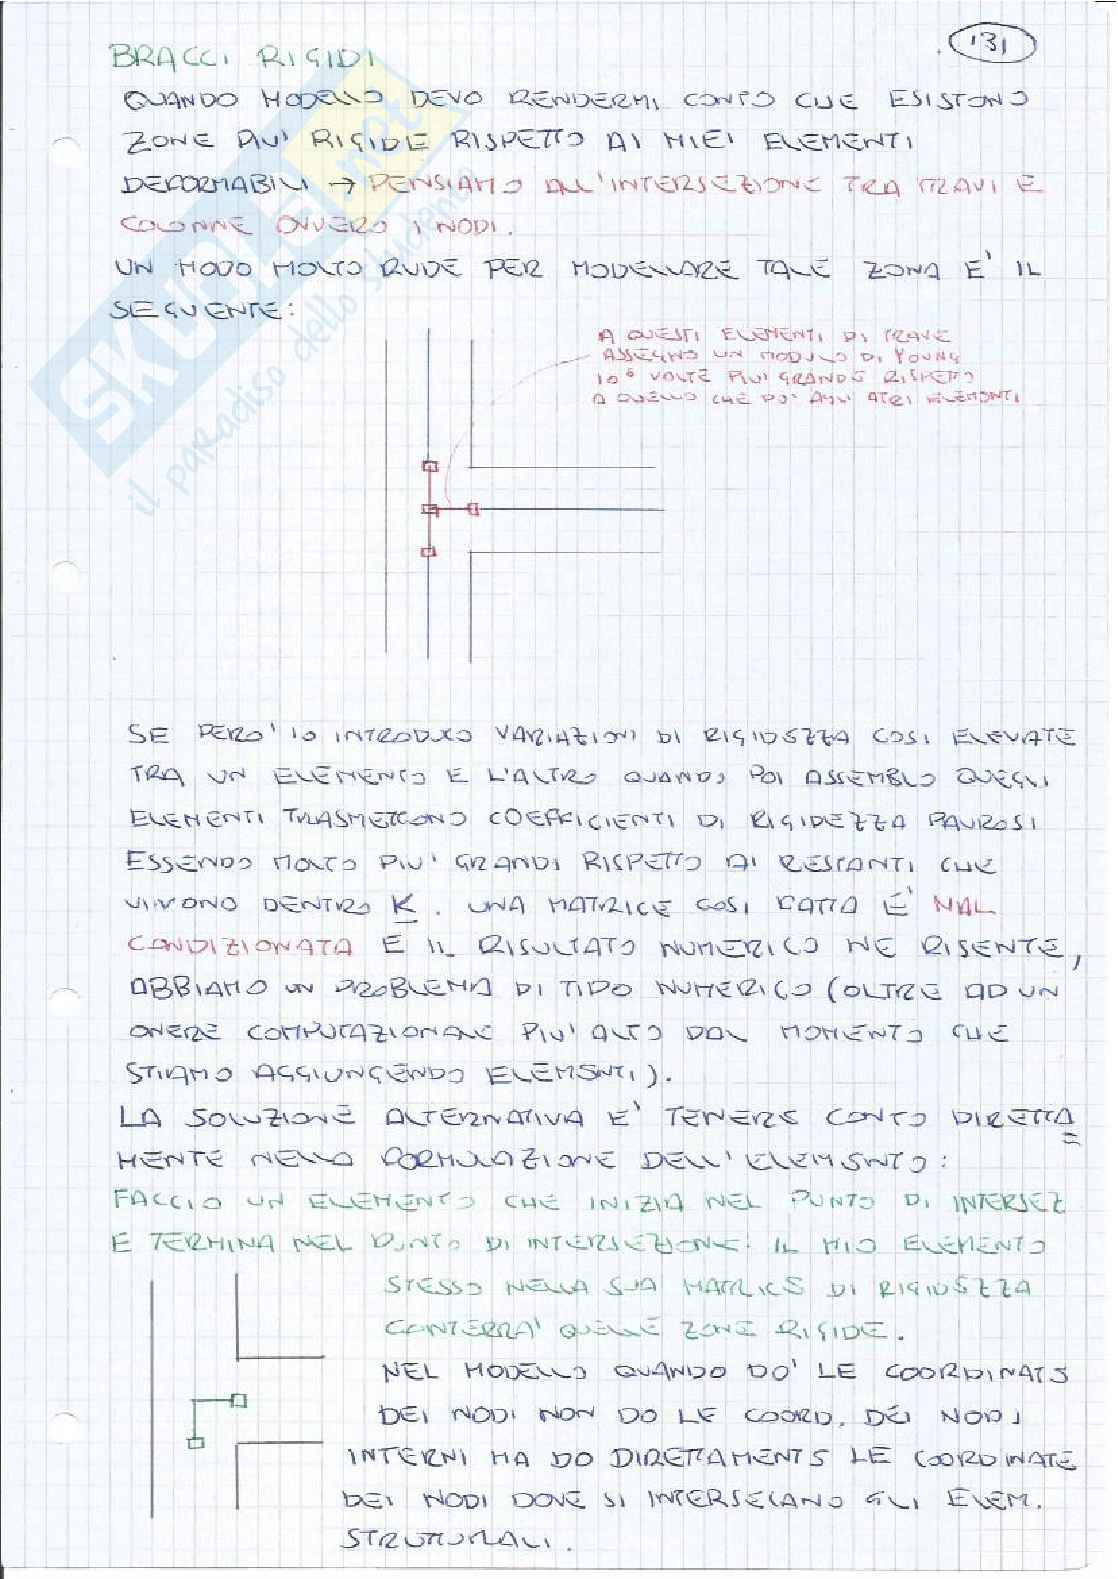 131
BRACCI RIGIDI
QUANDO MODELLO DEVO RENDERMI CONTO CHE ESISTONO
ZONE PIU' RIGIDE RISPETTO AI MIEI ELEMENTI
DEFORMABILI → PENSIAMO ALL'INTERSEZIONE TRA TRAVI E
COLONNE OVVERO I NODI.
UN MODO MOLTO RUDE PER MODELLARE TALE ZONA E' IL
SEGUENTE:
A QUESTI ELEMENTI DI TRAVE
ASSEGNO UN MODULO DI YOUNG
10⁶ VOLTE PIU' GRANDE RISPETTO
A QUELLO CHE DO' AGLI ATRI ELEMENTI
SKUOLA.net
il paradiso dello studente
SE PERO' IO INTRODUCO VARIAZIONI DI RIGIDEZZA COSI ELEVATE
TRA UN ELEMENTO E L'ALTRO QUANDO POI ASSEMBLO QUEGLI
ELEMENTI TRASMETTONO COEFFICIENTI DI RIGIDEZZA PAUROSI
ESSENDO MOLTO PIU' GRANDI RISPETTO AI RESTANTI CHE
VIVONO DENTRO K. UNA MATRICE COSI FATTA E' MAL
CONDIZIONATA E IL RISULTATO NUMERICO NE RISENTE,
ABBIAMO UN PROBLEMA DI TIPO NUMERICO (OLTRE AD UN
ONERE COMPUTAZIONALE PIU' ALTO DAL MOMENTO CHE
STIAMO AGGIUNGENDO ELEMENTI).
LA SOLUZIONE ALTERNATIVA E' TENERE CONTO DIRETTA=
MENTE NELLA FORMULAZIONE DELL'ELEMENTO:
FACCIO UN ELEMENTO CHE INIZIA NEL PUNTO DI INTERSEZ
E TERMINA NEL PUNTO DI INTERSEZIONE. IL MIO ELEMENTO
STESSO NELLA SUA MATRICE DI RIGIDEZZA
CONTERRA' QUELLE ZONE RIGIDE.
NEL MODELLO QUANDO DO' LE COORDINATE
DEI NODI NON DO LE COORD. DEI NODI
INTERNI MA DO DIRETTAMENTE LE COORDINATE
DEI NODI DOVE SI INTERSECANO GLI ELEM.
STRUTTURALI.